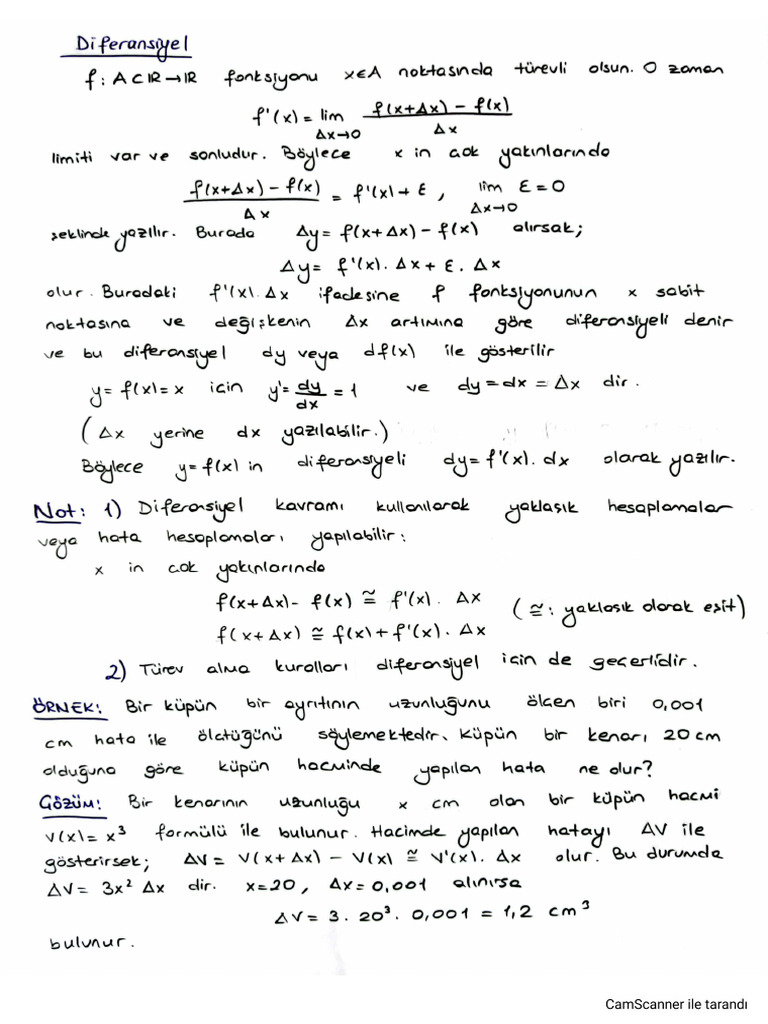 Diferansiyel
f: A⊂IR→IR fonksiyonu x∈A noktasında türevli olsun. O zaman
f'(x) = lim Δx→0 (f(x+Δx) - f(x)) / Δx
limiti var ve sonludur. Böylece x in çok yakınlarında
(f(x+Δx) - f(x)) / Δx = f'(x) + ε , lim Δx→0 ε = 0
şeklinde yazılır. Burada Δy = f(x+Δx) - f(x) alırsak;
Δy = f'(x). Δx + ε. Δx
olur. Buradaki f'(x). Δx ifadesine f fonksiyonunun x sabit
noktasına ve değişkenin Δx artımına göre diferansiyeli denir
ve bu diferansiyel dy veya df(x) ile gösterilir
y = f(x) = x için y' = dy/dx = 1 ve dy = dx = Δx dir.
(Δx yerine dx yazılabilir.)
Böylece y = f(x) in diferansiyeli dy = f'(x). dx olarak yazılır.
Not: 1) Diferansiyel kavramı kullanılarak yaklaşık hesaplamalar
veya hata hesaplamaları yapılabilir:
x in çok yakınlarında
f(x+Δx) - f(x) ≅ f'(x). Δx
(≅: yaklaşık olarak eşit)
f(x+Δx) ≅ f(x) + f'(x). Δx
2) Türev alma kuralları diferansiyel için de geçerlidir.
ÖRNEK: Bir küpün bir ayrıtının uzunluğunu ölçen biri 0,001
cm hata ile ölçtüğünü söylemektedir. Küpün bir kenarı 20 cm
olduğuna göre küpün hacminde yapılan hata ne olur?
Çözüm: Bir kenarının uzunluğu x cm olan bir küpün hacmi
V(x) = x³ formülü ile bulunur. Hacimde yapılan hatayı ΔV ile
gösterirsek; ΔV = V(x+Δx) - V(x) ≅ V'(x). Δx olur. Bu durumda
ΔV = 3x² Δx dir. x=20, Δx=0,001 alınırsa
ΔV = 3. 20³. 0,001 = 1,2 cm³
bulunur.
CamScanner ile tarandı